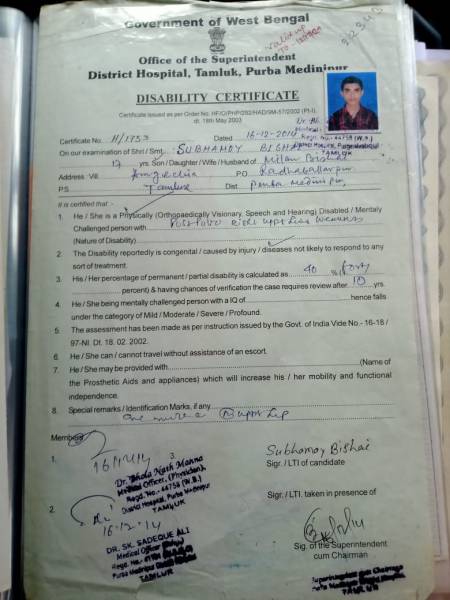 Government of West Bengal
Office of the Superintendent
District Hospital, Tamluk, Purba Medinipur
DISABILITY CERTIFICATE
Certificate issued as per Order No. HF/O/PHP/292/HAD/9M-57/2002 (Pt-I),
dt. 18th May 2003
Certificate No. H/1753 Dated 16-12-2014
On our examination of Shri / Smt. SUBHAMOY BISHAI
17 yrs. Son / Daughter / Wife / Husband of Milan Bishai
Address : Vill P.O. Radhaballavpur
P.S. Tamluk Dist. Purba Medinipur
It is certified that :-
1. He / She is a Physically (Orthopaedically Visionary, Speech and Hearing) Disabled / Mentaly
Challenged person with Post Polio Right upper Limb weakness
(Nature of Disability)
2. The Disability reportedly is congenital / caused by injury / diseases not likely to respond to any
sort of treatment.
3. His / Her percentage of permanent / partial disability is calculated as 40 % (forty
percent) & having chances of verification the case requires review after 10 yrs.
4. He / She being mentally challenged person with a IQ of hence falls
under the category of Mild / Moderate / Severe / Profound.
5. The assessment has been made as per instruction issued by the Govt. of India Vide No.- 16-18 /
97-NI. Dt. 18. 02. 2002.
6. He / She can / cannot travel without assistance of an escort.
7. He / She may be provided with (Name of
the Prosthetic Aids and appliances) which will increase his / her mobility and functional
independence.
8. Special remarks / Identification Marks, if any
One mole (R) upper Lip
Members
1. 16/12/14 3.
Dr. Bhola Nath Manna
Medical Officer, (Physician),
Regd. No.- 44758 (W.B.)
District Hospital, Purba Medinipur
TAMLUK
Subhamoy Bishai
Sigr. / LTI of candidate
2. 16-12-14
Sigr. / LTI. taken in presence of
DR. SK. SADEQUE ALI
Medical Officer
Purba Medinipur District Hospital
TAMLUK
Sig. of the Superintendent
cum Chairman
Superintendent cum Chairman
Purba Medinipur District Hospital
TAMLUK